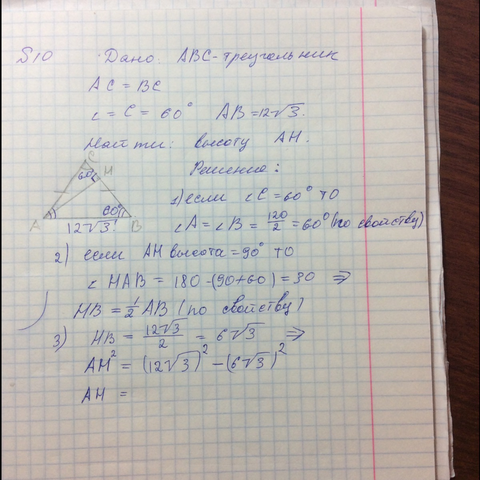 №10 Дано: ABC - треугольник
AC = BC
∠ = C = 60° AB = 12√3.
Найти: высоту AH.
Решение:
C
60°
H
A
60°
B
12√3
1) если ∠C = 60° то
∠A = ∠B = 120/2 = 60° (по свойству)
2) если AH высота = 90° то
∠HAB = 180 - (90+60) = 30 ⇒
HB = 1/2 AB (по свойству)
3) HB = 12√3/2 = 6√3 ⇒
AH² = (12√3)² - (6√3)²
AH =